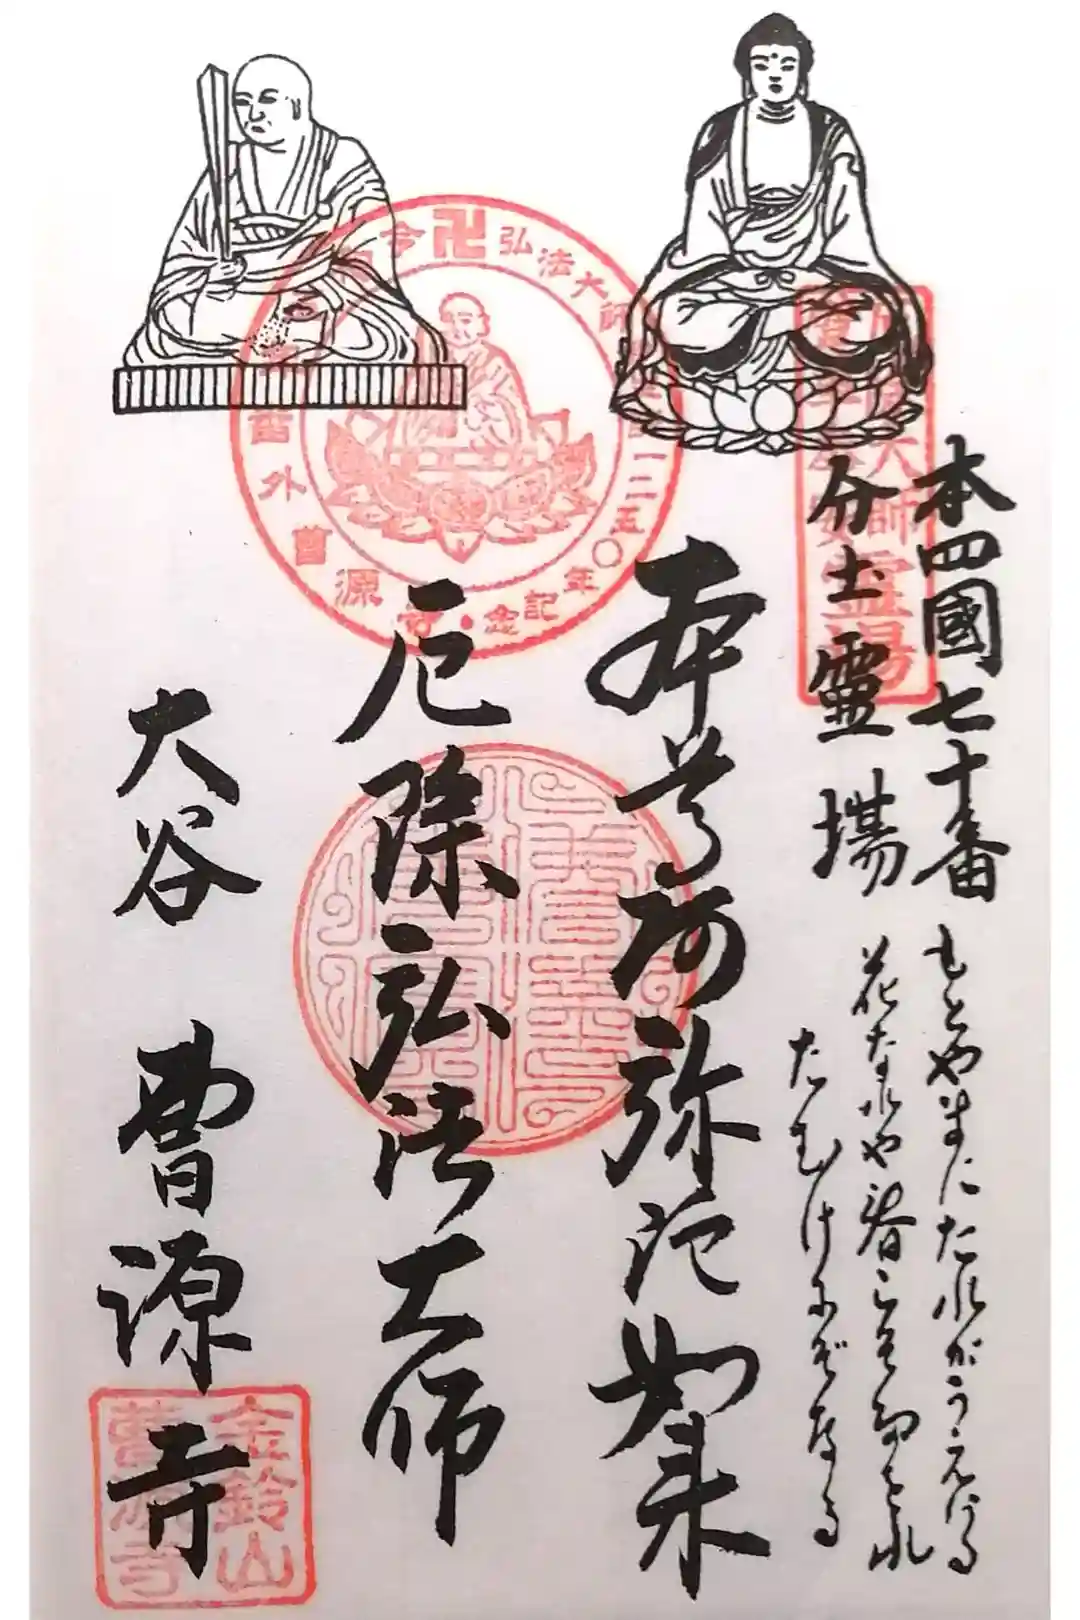 本四國七十番
分土靈場
もとやまにたれがうえける
花なれや春こそたおれ
たむけにぞなる
本尊阿弥陀如来
厄除弘法大師
大谷 曹源寺
弘法大師
一二五〇年記念
大師霊場
金鈴山
曹源寺